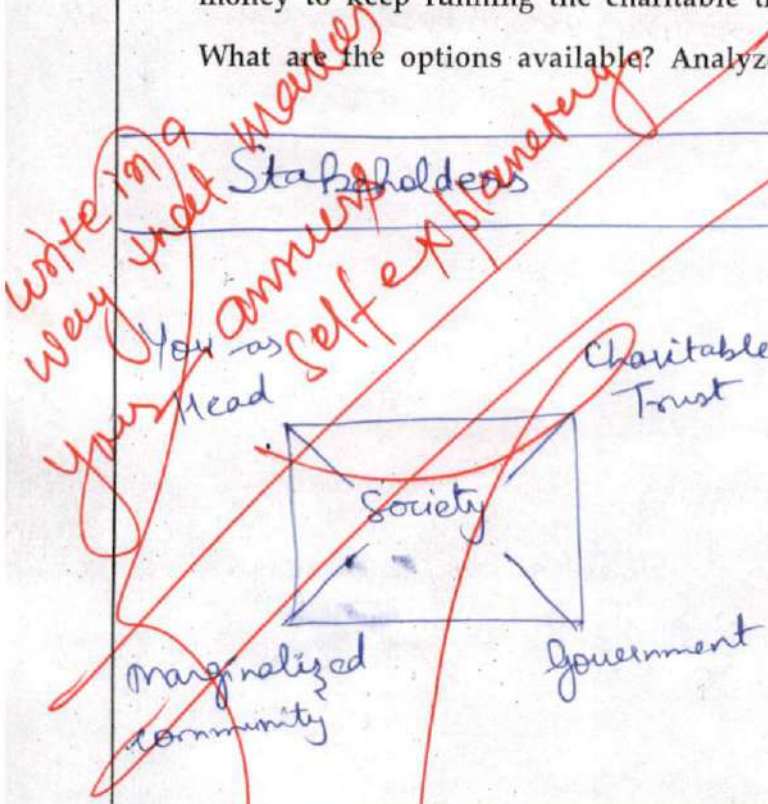 money to keep running the charitable t
What are the options available? Analyze
Stakeholders
write in a
way that makes
your answer
self explanetery
You as
Head
Charitable
Trust
Society
Marginalized
community
Government